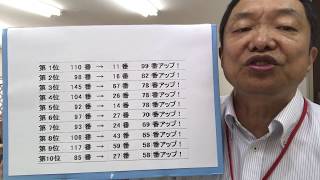 第1位 110番 → 11番 99番アップ！
第2位 98番 → 16番 82番アップ！
第3位 145番 → 67番 78番アップ！
第4位 104番 → 26番 78番アップ！
第5位 92番 → 14番 78番アップ！
第6位 97番 → 27番 70番アップ！
第7位 93番 → 24番 69番アップ！
第8位 108番 → 43番 65番アップ！
第9位 117番 → 59番 58番アップ！
第10位 85番 → 27番 58番アップ！